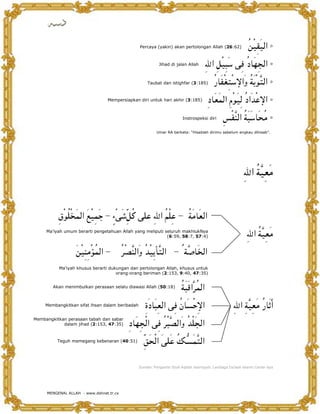 Percaya (yakin) akan pertolongan Allah (26:62) اَلْيَقِيْنُ *
Jihad di jalan Allah اَلْجِهَادُ فِى سَبِيْلِ اللهِ *
Taubat dan istighfar (3:185) اَلتَّوْبَةُ وَالْإِسْتِغْفَارُ *
Mempersiapkan diri untuk hari akhir (3:185) اَلْإِعْدَادُ لِيَوْمِ الْمَعَادِ *
Instrospeksi diri مُحَاسَبَةُ النَّفْسِ *
Umar RA berkata: "Hisablah dirimu sebelum engkau dihisab".
مَعِيَّةُ اللهِ
اَلْعَامَةُ – عِلْمُ اللهِ عَلَى كُلِّ شَىْءٍ – جَمِيْعُ الْمَخْلُوْقِ
Ma'iyah umum berarti pengetahuan Allah yang meliputi seluruh makhlukNya
(6:59, 58:7, 57:4)
مَعِيَّةُ اللهِ
اَلْخَاصَّةُ – اَلتَّأْيِيْدُ وَالنَّصْرُ – اَلْمُؤْمِنِيْنَ
Ma'iyah khusus berarti dukungan dan pertolongan Allah, khusus untuk
orang-orang beriman (2:153, 9:40, 47:35)
Akan menimbulkan perasaan selalu diawasi Allah (50:18) اَلْمُرَاقَبَةُ
Membangkitkan sifat ihsan dalam beribadah اَلْإِحْسَانُ فِى الْعِبَادَةِ
آثَارُ مَعِيَّةِ اللهِ
Membangkitkan perasaan tabah dan sabar
dalam jihad (2:153, 47:35) اَلْجَلْدُ وَالصَّبْرُ فِى الْجِهَادِ
Teguh memegang kebenaran (40:51) اَلتَّمَسُّكُ عَلَى الْحَقِّ
MENGENAL ALLAH - www.dakwat.tr.cx